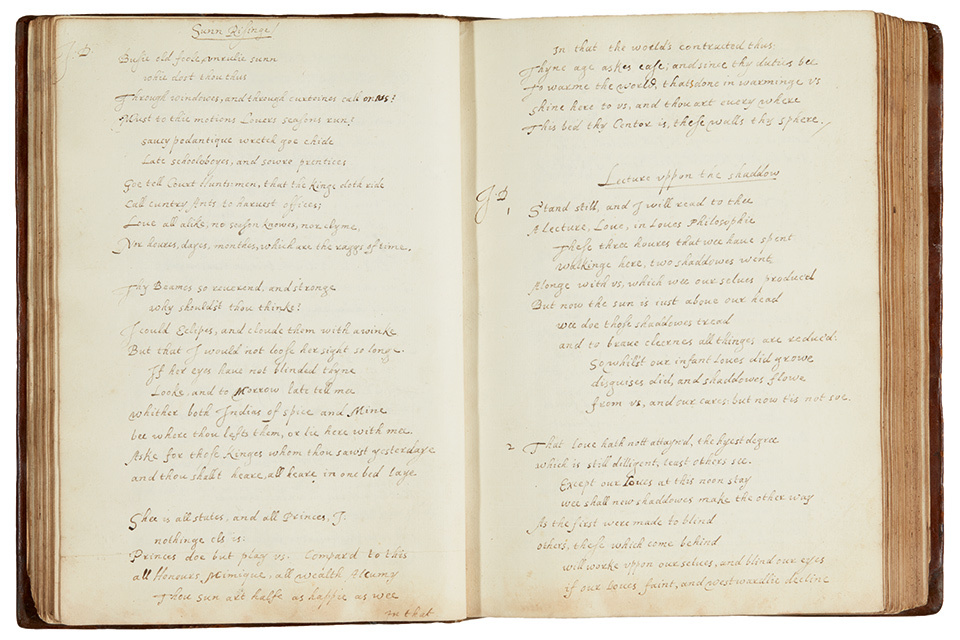 Sunn Risinge
J.D.
Busie old foole, vnrulie sunn
whie dost thou thus
Through windowes, and through curteines call on vs?
Must to thie motions Louers seasons run?
saucy pedantique wretch goe chide
Late schooleboyes, and sowre prentices
Goe tell Court Huntsmen, that the Kinge doth ride
Call cuntry Ants to harvest offices;
Loue all alike, no season knowes, nor clyme,
Nor houres, dayes, monthes, which are the raggs of time.
Thy Beames so reuerend, and stronge
why shouldst thou thinke?
I could Eclipes, and cloude them with a winke
But that I would not loose her sight so longe.
If her eyes haue not blinded thyne
Looke, and to Morrow late tell mee
whither both Indias of spice and Mine
bee where thou lefts them, or lie here with mee.
Aske for those Kinges whom thou sawst yesterdaye
and thou shallt heare, all heare in one bed laye
Shee is all states, and all Princes, I.
nothinge els is:
Princes doe but play vs. Compard to this
all Honours Mimique, all wealth Alcumy
Thou sun art halfe as happie as wee
in that
In that the worlds contracted thus
Thyne age askes ease; and since thy duties bee
To warme the World, thats done in warminge vs
shine here to vs, and thou art euery where
This bed thy Center is, these walls thy sphere.
Lecture vppon the shaddow
J.D.
1 Stand still, and I will read to thee
A lecture, Loue, in Loues Philosophie
These three houres that wee haue spent
walkinge here, two shaddowes went
Alonge with vs, which wee our selues producd
But now the sun is iust aboue our head
wee doe those shaddowes tread
and to braue cleernes all thinges are reduc'd.
So whilst our infant Loues did growe
disguises did, and shaddowes flowe
from vs, and our cares: but now tis not soe.
2 That loue hath nott attaynd, the hyest degree
which is still dilligent, least others see.
Except our Loues at this noon stay
wee shall new shaddowes make the other way
As the first were made to blind
others, these which come behind
will worke vppon our selues, and blind our eyes
if our Loues faint, and westwardlie decline